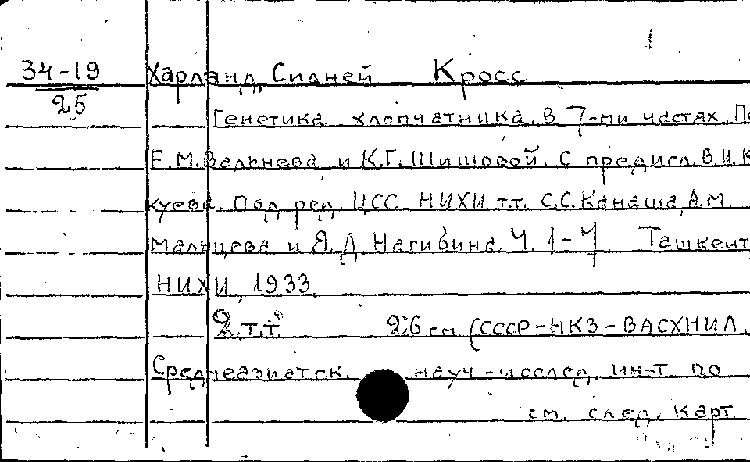 1
34-19 Харланд, Сидней Кросс
25
Генетика хлопчатника. В 7-ми частях. Пе
Е.М. и К.Г. Шишовой. С предисл. В.И. К
куева. Под ред. ЦСС НИХИ т.т. С.С. Канаша, А.М.
Мальцева и Я.Д. Нагибина. Ч. 1-7 Ташкент
НИХИ, 1933.
2 т.т. 26 см. (СССР-НКЗ-ВАСХНИЛ.
Среднеазиатск. науч-исслед. ин-т по
см. след. карт